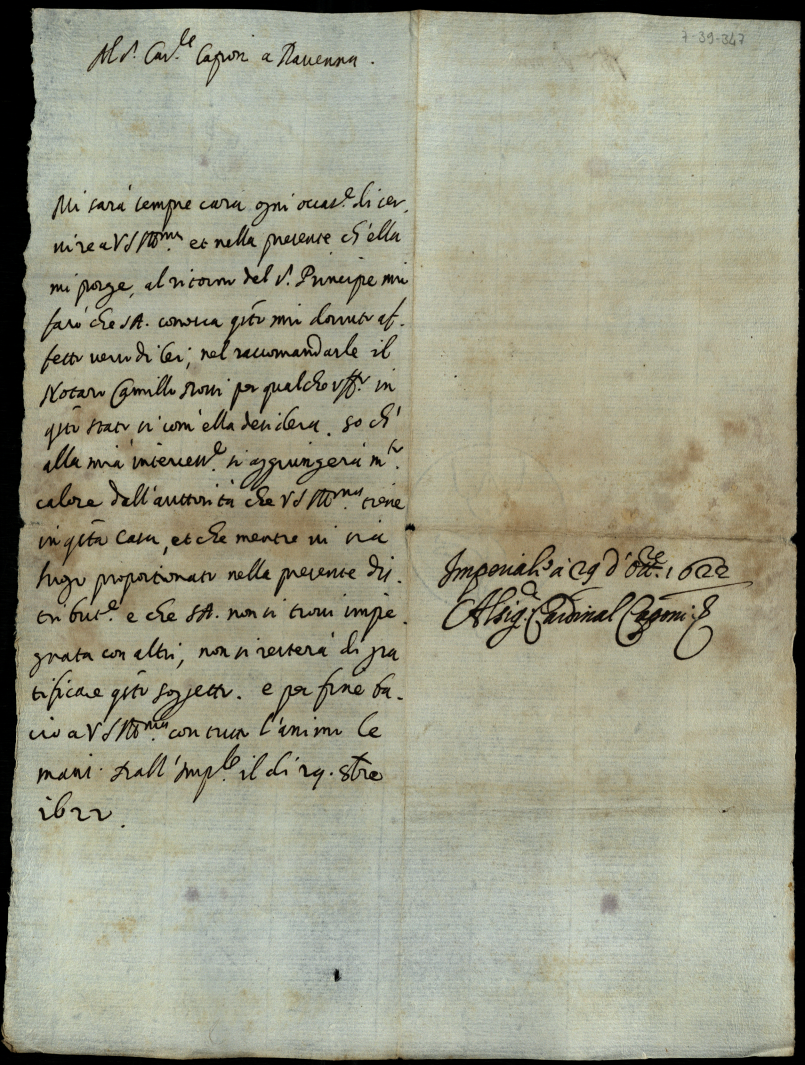 7-39-347
Al S.r Car.le Caponi a Ravenna.
Mi sarà sempre cara ogni occas.e di ser,
vire a V S Ill.ma et nella presente ch'ella
mi porge, al ritorno del S. Principe mio
farò che S A. conosca q.sto mio dovuto af.
fetto verso di lei, nel raccomandarle il
Notaro Camillo Rossi per qualche uff.o in
q.sto stato si com' ella desidera. So ch'
alla mia interces.e si aggiungerà m.to
calore dall'auttorità che V S Ill.ma tiene
in q.sta Casa, et che mentre vi sia
luogo proportionato nella presente dis.
tribut.e e che S A. non si trovi impe,
gnata con altri, non si resterà di gra
tificare q.sto soggetto. e per fine ba.
cio a V S Ill.ma con tutto l'animo le
mani. Dall'Imp.le il dì 29. 8bre
1622.
Imperial.e à 29 d' Ott.re 1622
Al sig.r Cardinal Caponi